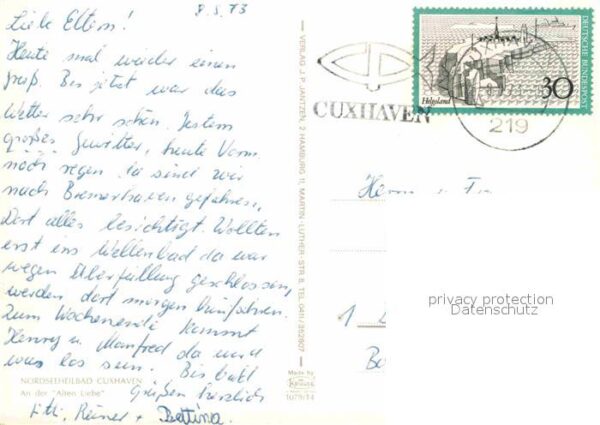 8.5.73
Liebe Eltern!
Heute mal wieder einen
Gruß. Bis jetzt war das
Wetter sehr schön. Gestern
großes Gewitter, heute Vorm.
noch regen. Da sind wir
nach Bremerhaven gefahren,
Dort alles besichtigt. Wollten
erst ins Wellenbad da war
wegen Überfüllung geschlossen,
werden dort morgen hinfahren.
Zum Wochenende kommt
Henry u. Manfred da wird
was los sein. Bis bald
Grüßen herzlich
Reiner + Bettina
NORDSEEHEILBAD CUXHAVEN
An der "Alten Liebe"
VERLAG J. P. JANTZEN, 2 HAMBURG 11, MARTIN-LUTHER-STR. 8, TEL. 0411/362807
Made by
KRÜGER
1079/14
CUXHAVEN
219
Helgoland
30
DEUTSCHE BUNDESPOST
Herrn u.
1
privacy protection
Datenschutz